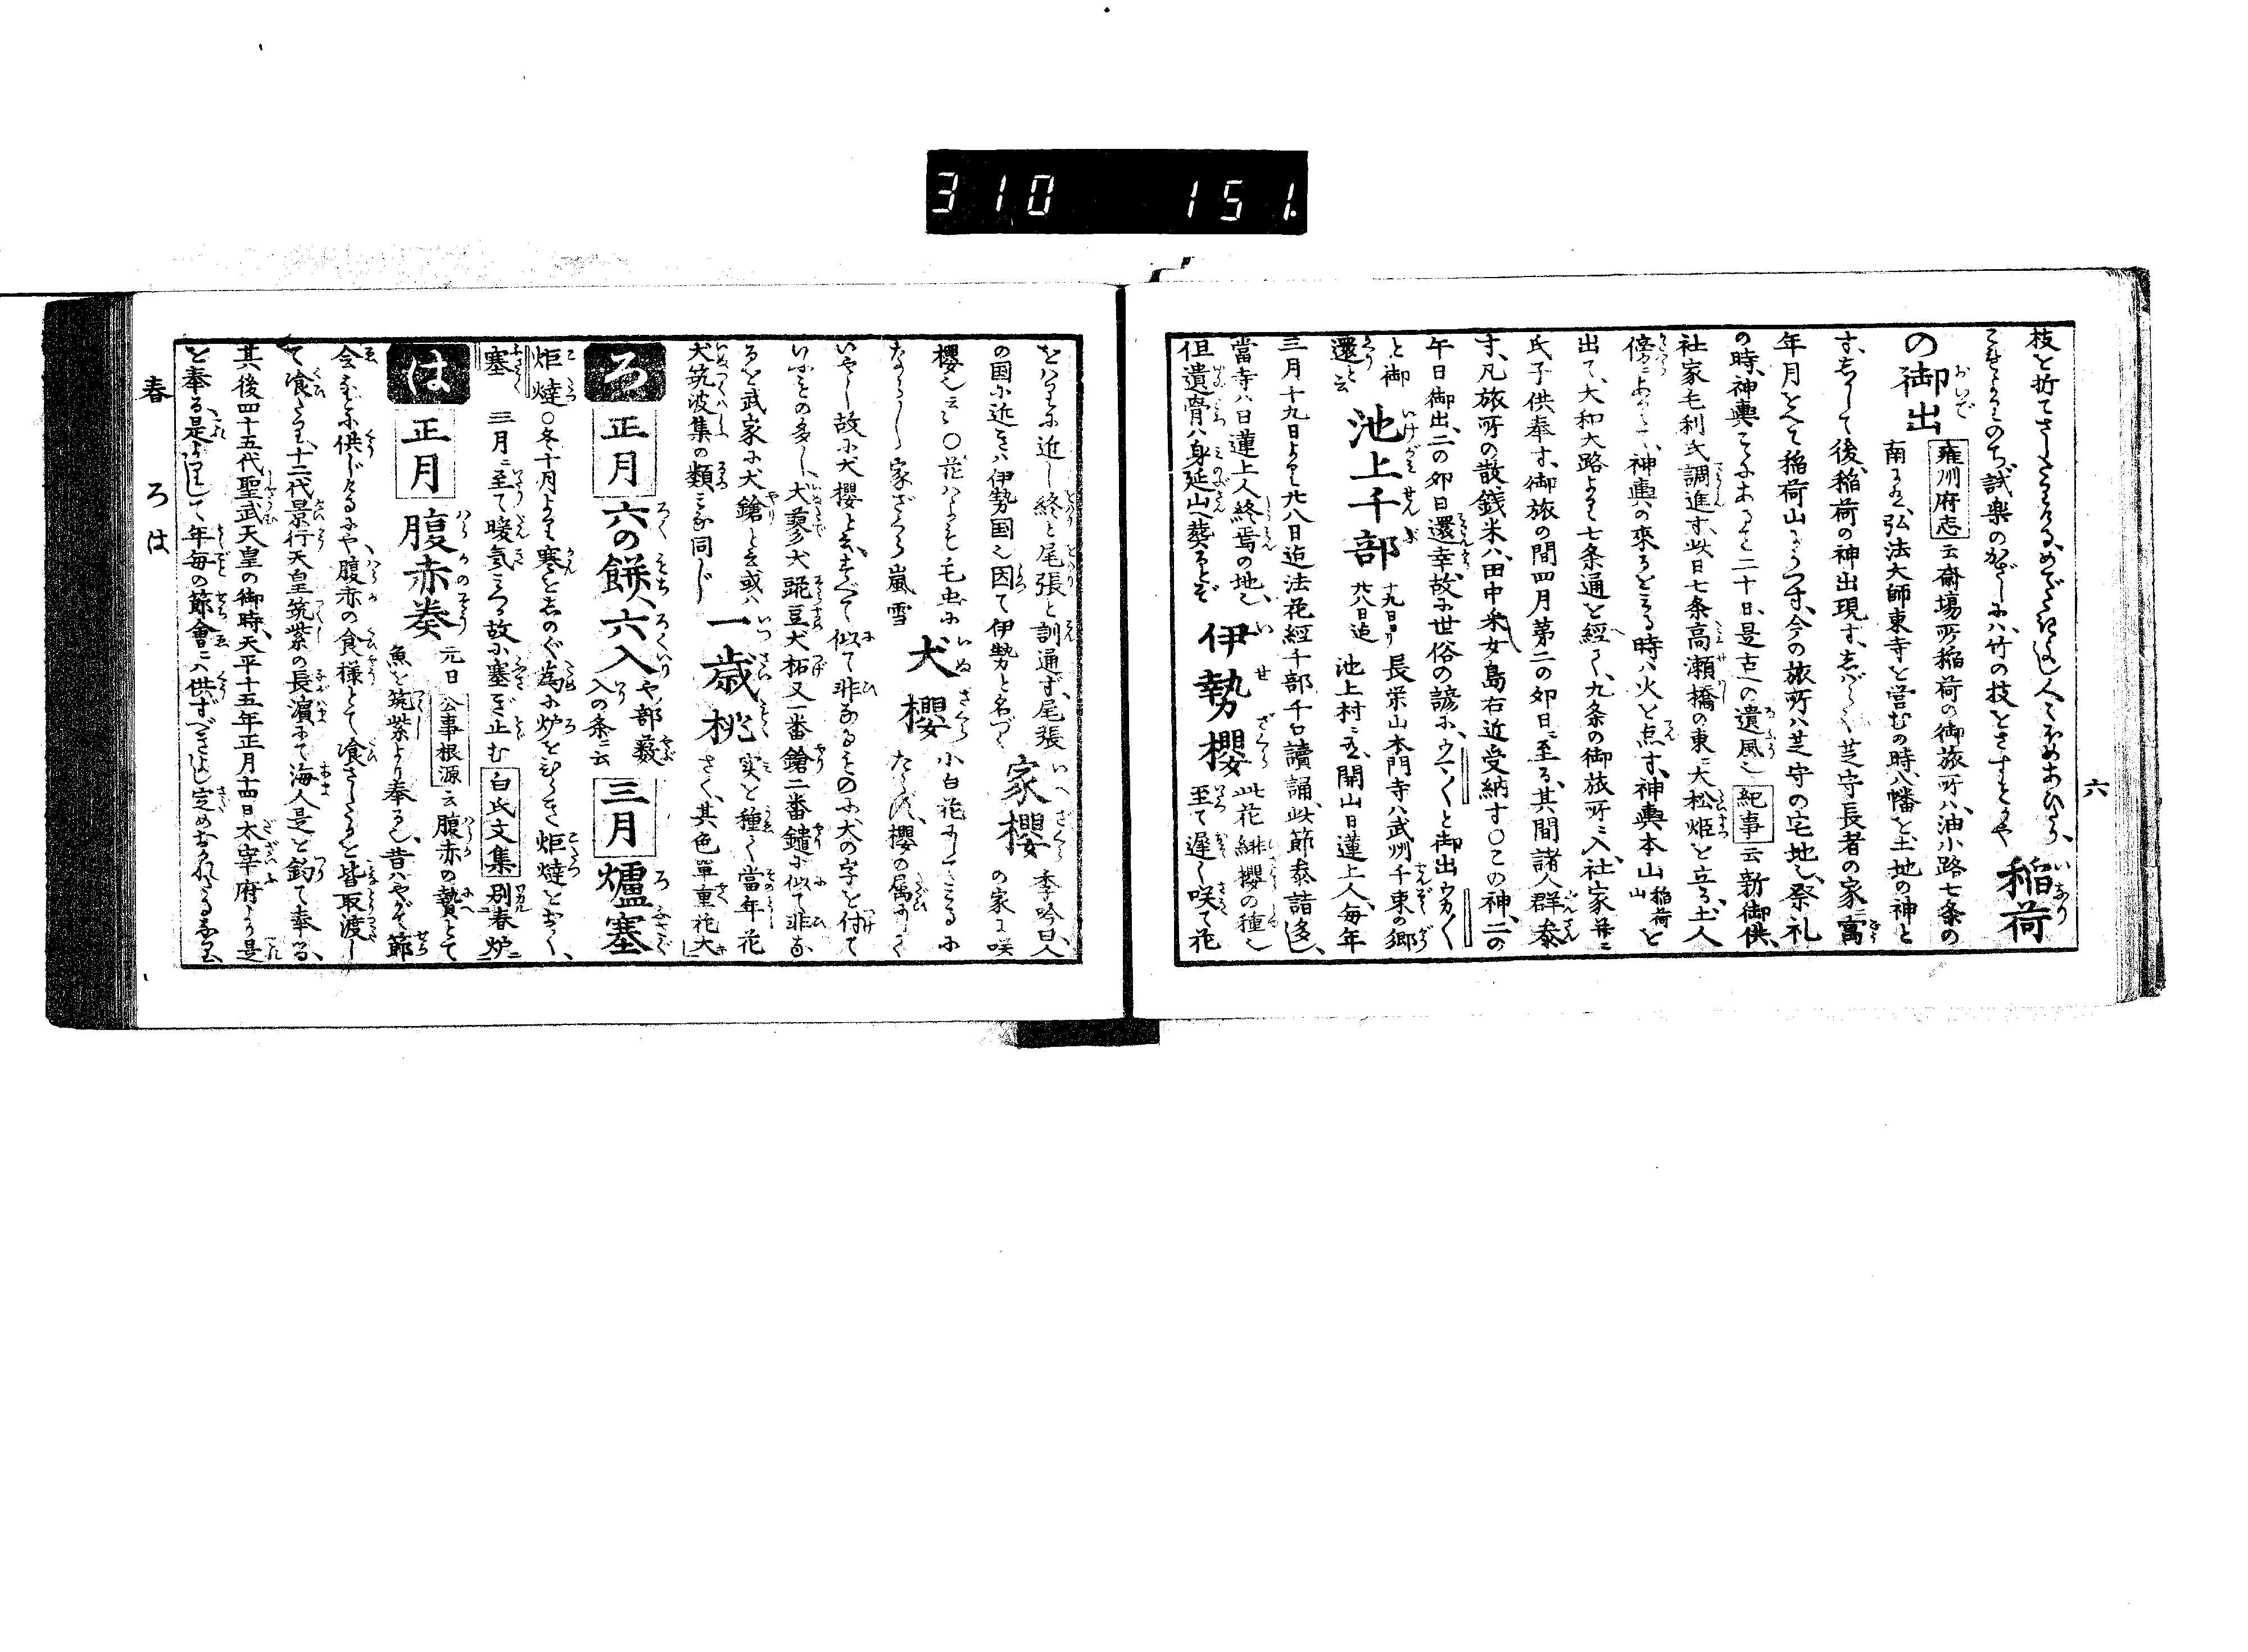 310 151.
六
枝を折てさしたりける、めでたきよし人々ほめあひたり、
稲荷
の御出
雍州府志云齋場所稲荷の御旅所ハ、油小路七条の
南にあり、弘法大師東寺を営むの時、八幡を土地の神と
す、しかして後、稲荷の神出現す、しばらく芝守長者の家ニ寓
年月をへて稲荷山にうつす、今の旅所ハ芝守の宅地也、祭礼
の時、神輿こゝにあること二十日、是古への遺風也 紀事云新御供、
社家毛利氏調進す、此日七条高瀬橋の東ニ大松炬を立る、土人
傍ニありて、神輿の來るをみる時ハ火を点す、神輿本山稲荷山を
出て、大和大路より七条通を經て、九条の御旅所ニ入、社家并ニ
氏子供奉す、御旅の間四月第二の卯日ニ至る、其間諸人群参
す、凡旅所の散錢米ハ、田中釆女島右近受納す〇この神、二の
午日御出、二の卯日還幸、故に世俗の諺に、ウマ〳〵と御出ウカ〳〵
と御還と云
池上千部
十九日ヨリ廿八日迄
長栄山本門寺ハ武州千束の郷
池上村ニあり、開山日蓮上人、毎年
三月十九日より廿八日迄法花經千部千口讀誦、此節参詣多し、
當寺ハ日蓮上人終焉の地也、
但遺骨ハ身延山へ葬るとぞ
伊勢櫻
此花緋櫻の種也
至て遅く咲て花
をハりに近し終と尾張と訓通ず、尾張
の国に近きハ伊勢国也因て伊勢と名づく
家櫻
季吟曰、人
の家に咲
櫻也云々〇花ハよそ毛虫に
ならし家ざくら嵐雪
犬櫻
小白花
いやし故に犬櫻と云、すべて似て非なるものに犬の字を付て
いふもの多し、犬蓼犬豌豆犬柘又一番鎗二番鑓に似て非な
るを武家に犬鎗と云或ハ
犬筑波集の類ミな同じ
一歳桃
実を種て當年花
さく、其色單重花大
ろ
正月
六の餅、六入
や部薮
入の条ニ云
三月
爐塞
炬燵〇冬十月より寒をしのぐ為に炉をひらき炬燵をおく、
塞 三月ニ至て暖氣ミつる故に塞ぎ止む 白氏文集 別春炉
は
正月
腹赤奏
元日 公事根源云腹赤の贄とて
魚を筑紫より奉る也、昔ハやがて節
会などに供じけるにや、腹赤の食様とて喰さしたるを皆取渡し
て喰たり、十二代景行天皇筑紫の長濱にて海人是を釣て奉る、
其後四十五代聖武天皇の御時、天平十五年正月十四日太宰府より是
を奉る、是よりして年毎の節會にハ供ずべきよし定めおかれたる
春 ろは